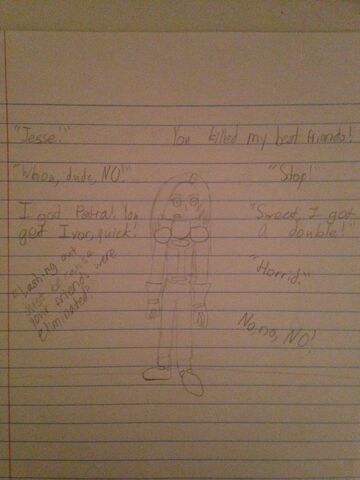 "Jesse!"
You killed my best friends!
"Whoa, dude, NO!"
"Stop!"
I got Petra! You
get Ivor, quick!
"Sweet, I got
a double!"
"Horrid."
Lashing out
because
your friends were
eliminated?
No, no, NO!